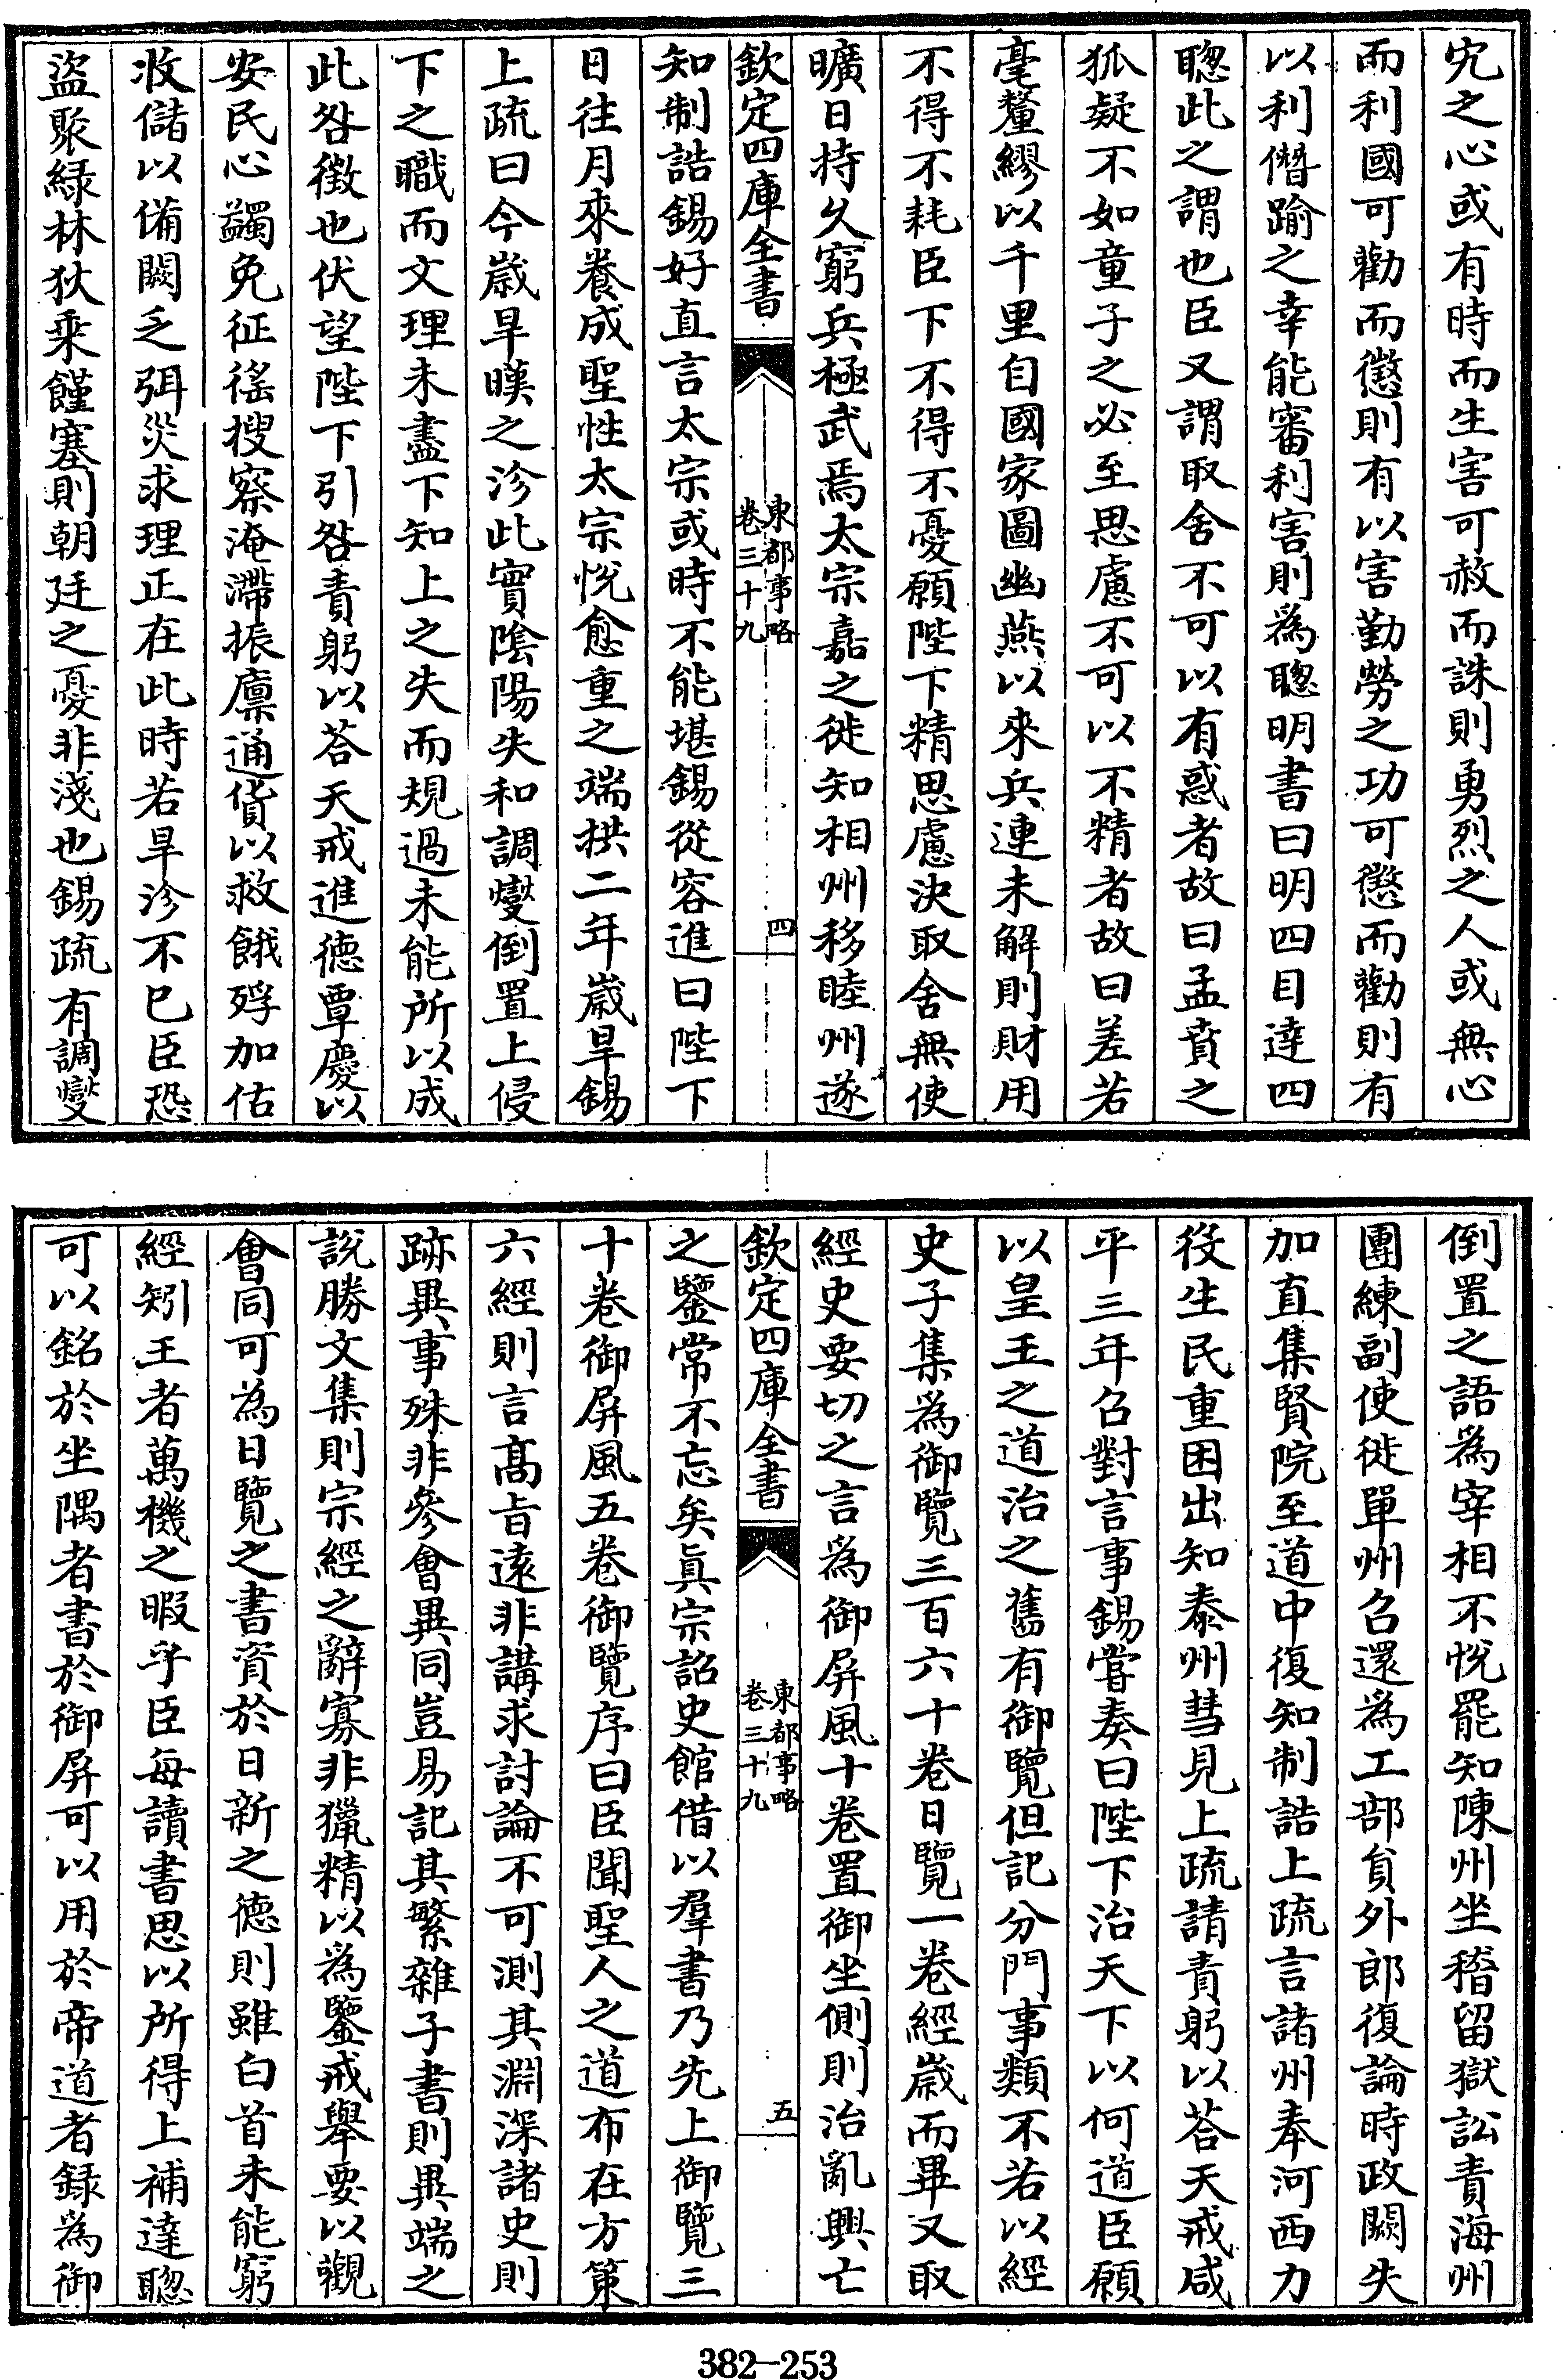 宄之心或有時而生害可赦而誅則勇烈之人或無心
而利國可勸而懲則有以害勤勞之功可懲而勸則有
以利僭踰之幸能審利害則為聰明書曰明四目達四
聰此之謂也臣又謂取舍不可以有惑者故曰孟賁之
狐疑不如童子之必至思慮不可以不精者故曰差若
毫釐繆以千里自國家圖幽燕以來兵連未解則財用
不得不耗臣下不得不憂願陛下精思慮決取舍無使
曠日持久窮兵極武焉太宗嘉之徙知相州移睦州遂
欽定四庫全書
東都事略
卷三十九
四
知制誥錫好直言太宗或時不能堪錫從容進曰陛下
日往月來養成聖性太宗悅愈重之端拱二年歲旱錫
上疏曰今歲旱暵之沴此實陰陽失和調燮倒置上侵
下之職而文理未盡下知上之失而規過未能所以成
此咎徵也伏望陛下引咎責躬以荅天戒進德覃慶以
安民心蠲免征徭搜察淹滯振廩通貨以救餓殍加估
收儲以備闕乏弭災求理正在此時若旱沴不已臣恐
盜聚綠林狄乘饉塞則朝廷之憂非淺也錫疏有調燮
倒置之語為宰相不悅罷知陳州坐稽留獄訟責海州
團練副使徙單州召還為工部負外郎復論時政闕失
加直集賢院至道中復知制誥上疏言諸州奉河西力
役生民重困出知泰州彗見上疏請責躬以荅天戒咸
平三年召對言事錫嘗奏曰陛下治天下以何道臣願
以皇王之道治之舊有御覽但記分門事類不若以經
史子集為御覽三百六十卷日覽一卷經歲而畢又取
經史要切之言為御屏風十卷置御坐側則治亂興亡
欽定四庫全書
東都事略
卷三十九
五
之鑒常不忘矣真宗詔史館借以羣書乃先上御覽三
十卷御屏風五卷御覽序曰臣聞聖人之道布在方策
六經則言髙旨遠非講求討論不可測其淵深諸史則
跡異事殊非參會異同豈易記其繁雜子書則異端之
說勝文集則宗經之辭寡非獵精以為鑒戒舉要以觀
會同可為日覽之書資於日新之德則雖白首未能窮
經矧王者萬機之暇乎臣每讀書思以所得上補達聰
可以銘於坐隅者書於御屏可以用於帝道者錄為御
382-253